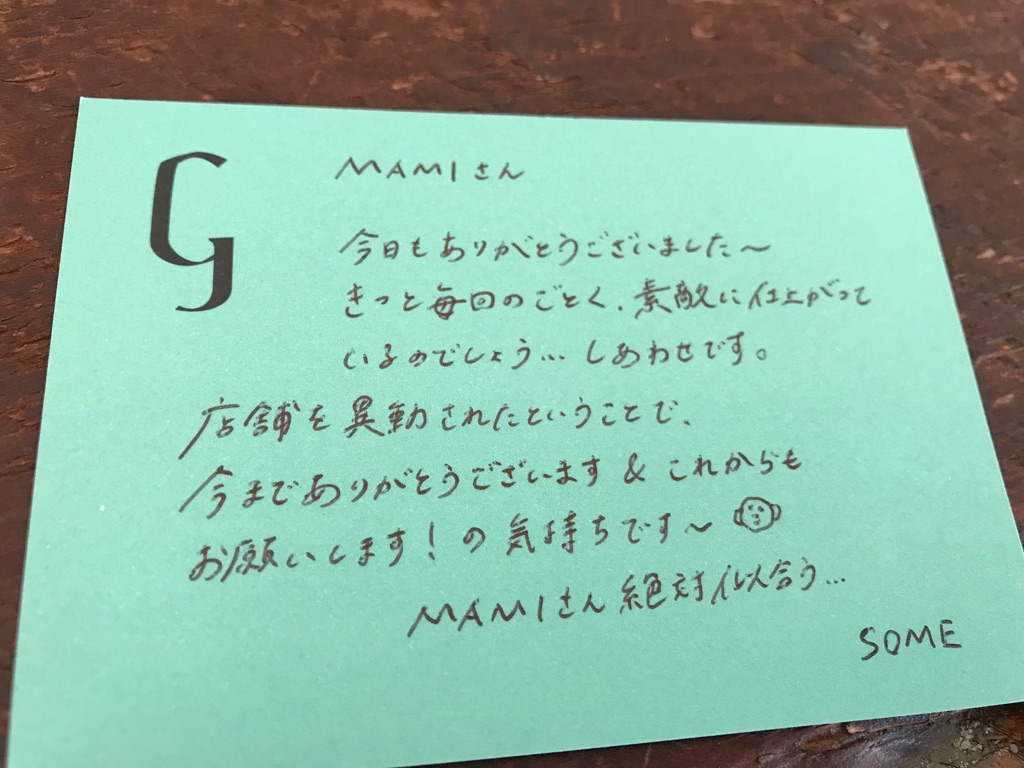 G
MAMIさん
今日もありがとうございました〜
きっと毎回のごとく、素敵に仕上がって
いるのでしょう... しあわせです。
店舗を異動されたということで、
今までありがとうございます & これからも
お願いします! の気持ちです〜
MAMIさん絶対似合う...
SOME